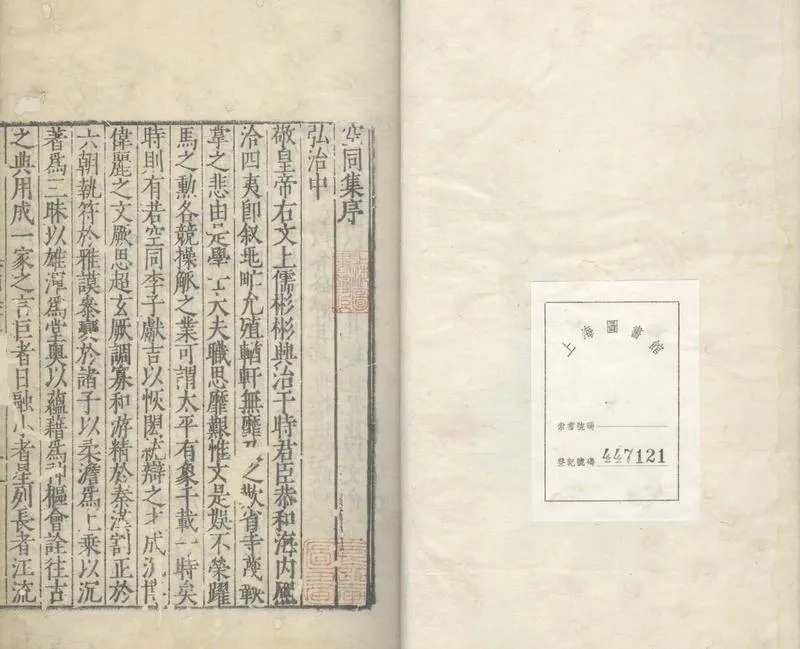 空同集序
弘治中
敬皇帝右文上儒彬彬興治于時君臣恭和海内熙
洽四夷即叙地曠允殖輶軒無靡及之歎省寺蔑鞅
掌之悲由是學士大夫職思靡艱惟文是娛不榮躍
馬之勲各競操觚之業可謂太平有象千載一時矣
時則有若空同李子獻吉以恢閎統辯之才成沉博
偉麗之文厥思超玄厥調寡和游精於秦漢割正於
六朝執符於雅謨參變於諸子以柔澹為上乘以沉
著為三昧以雄渾為堂奥以蘊藉為神樞會詮往古
之典用成一家之言巨者日融小者星列長者江流
上海圖書館
索書號碼
登記號碼 447121